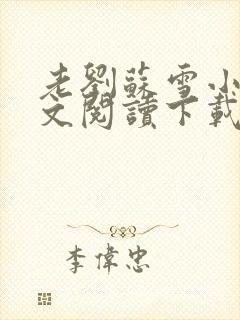 老劉蘇雪小
文閱讀下載
李偉忠